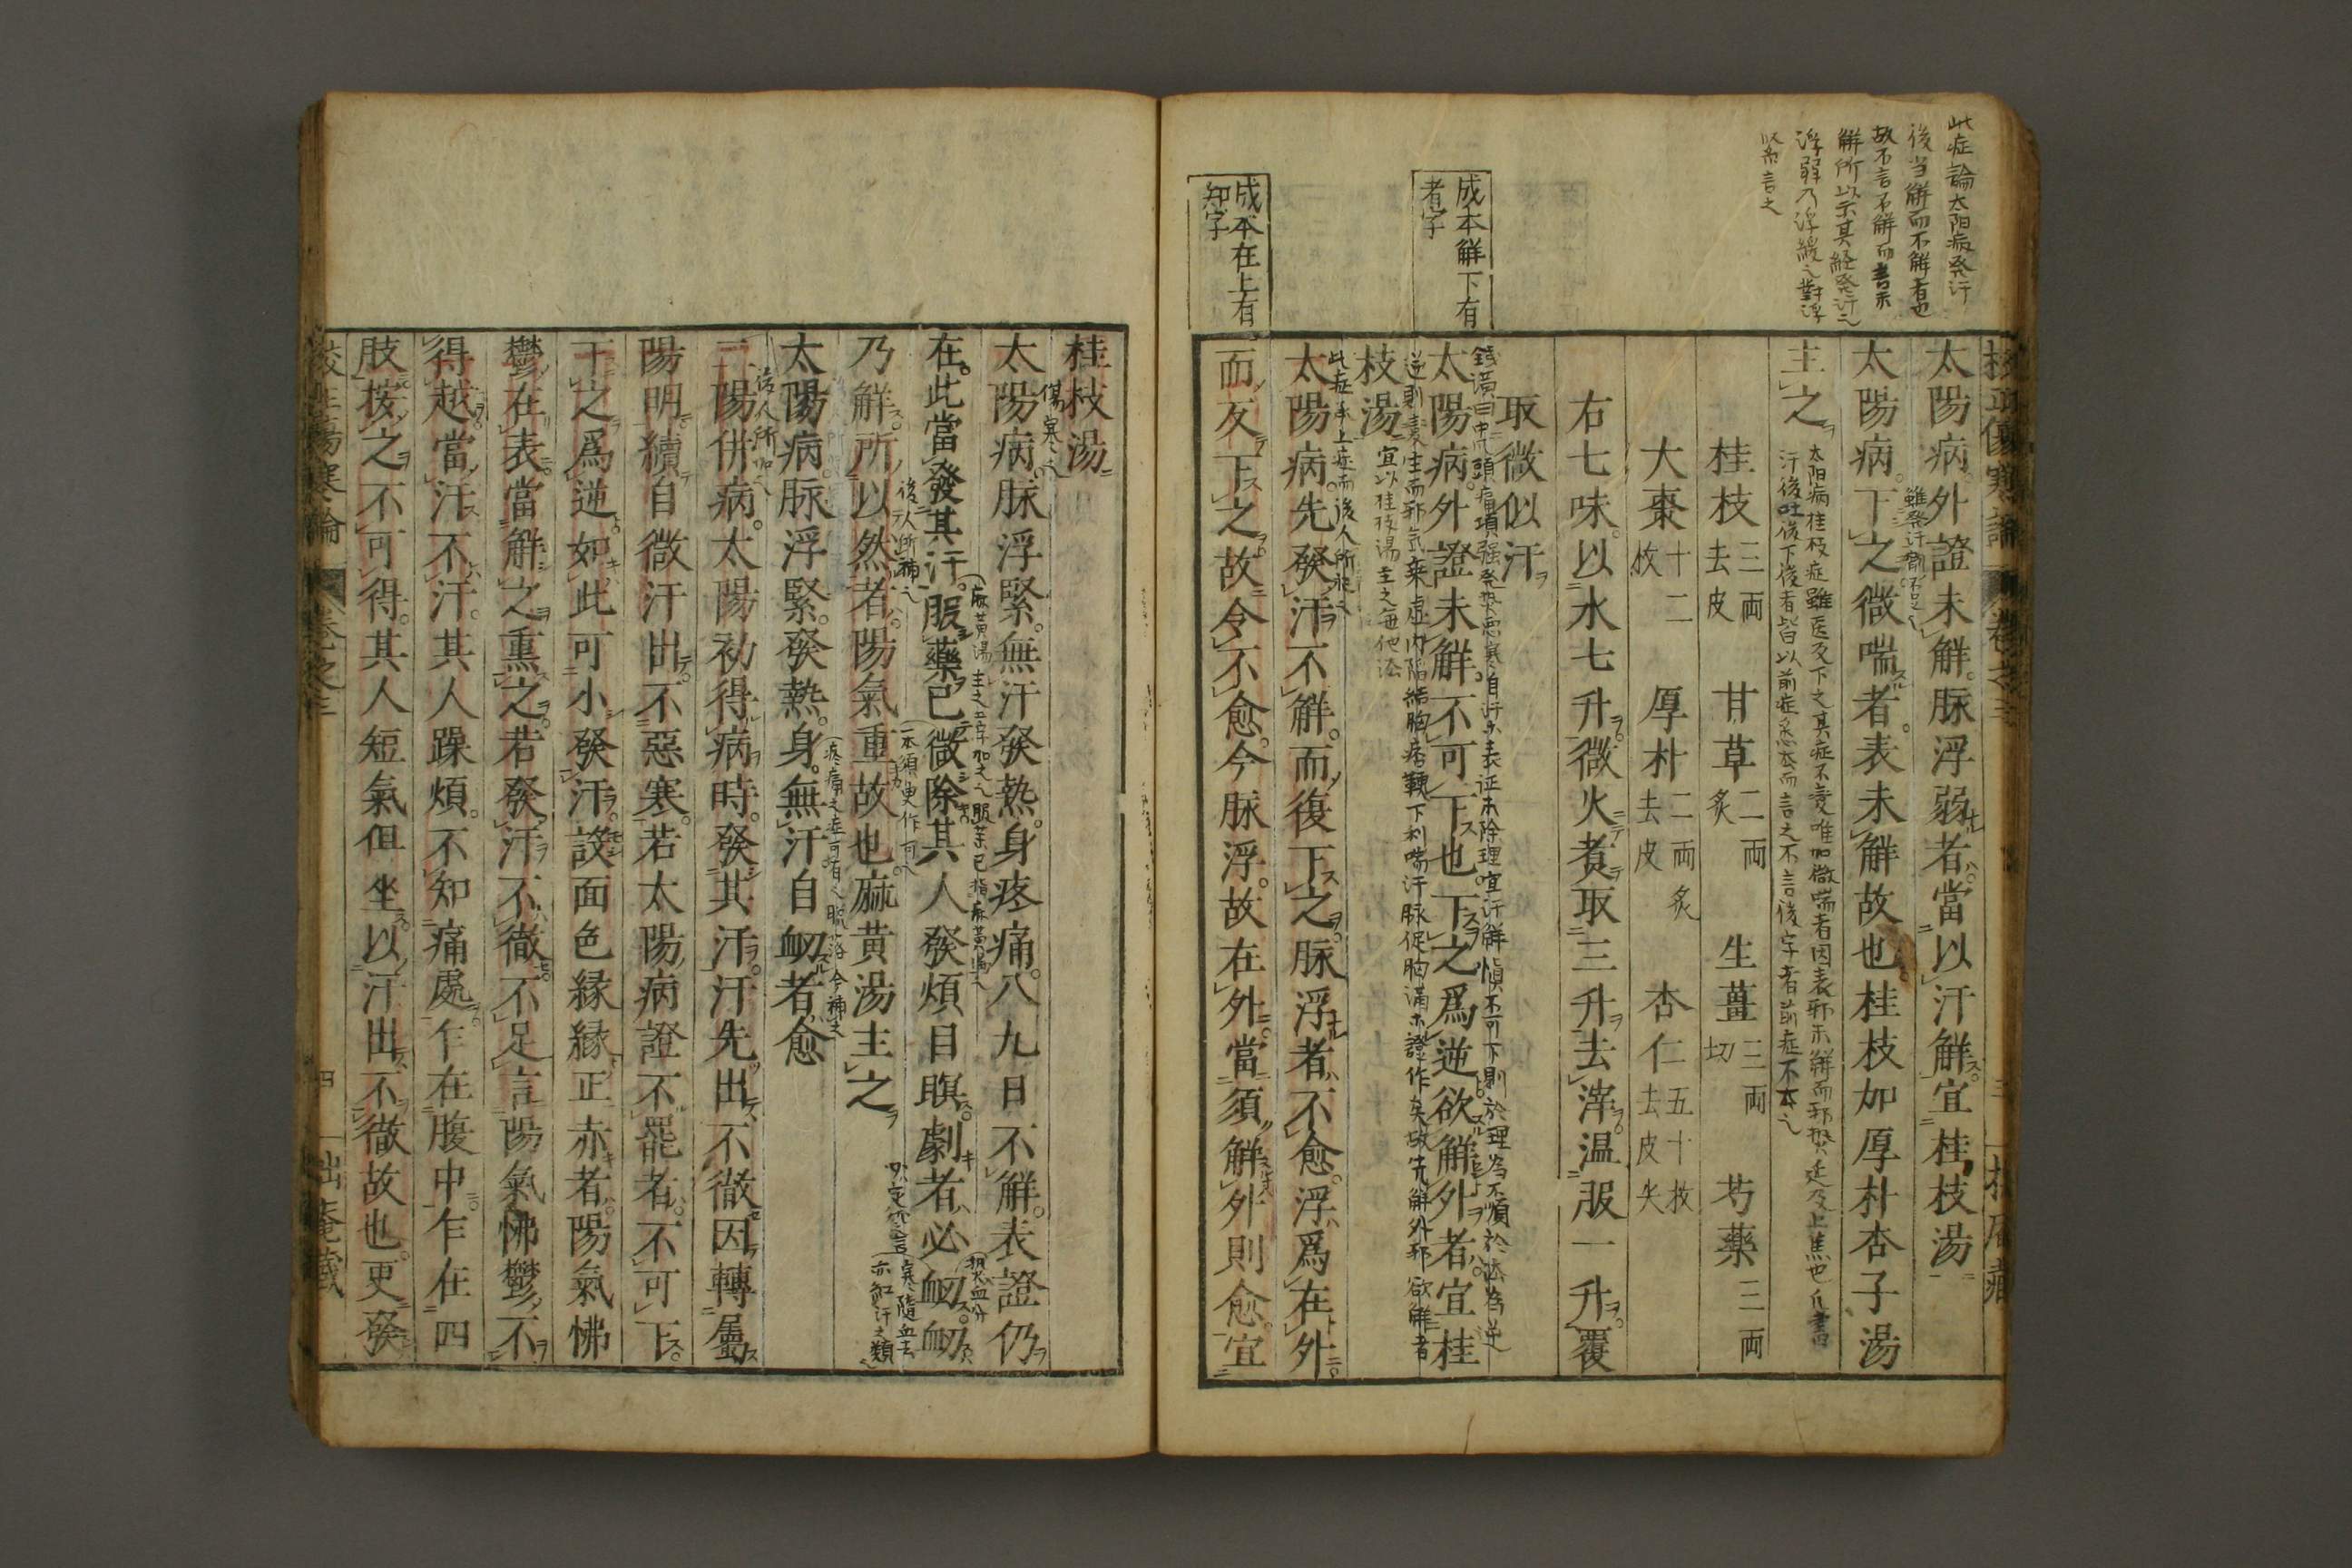 此症論太陽病発汗
後当解而不解者也
故不言不解而書未
解所以示其経発汗之
浮弱乃浮緩之對浮
緊言之
成本解下有
者字
成本在上有
知字
校正傷寒論 卷之三
太陽病外證未解脉浮弱者當以汗解宜桂枝湯
太陽病下之微喘者表未解故也桂枝加厚朴杏子湯
主之
太阳病桂枝症雖医反下之其症不変唯加微喘者因表邪未解而邪熱延及上焦也凡書
汗後吐後下後者皆以前症悉去而言之不言後字者前症不去也
桂枝三両去皮 甘草二両炙 生薑三両切 芍藥三両
大棗十二枚 厚朴二両炙去皮 杏仁五十枚去皮尖
右七味以水七升微火煮取三升去滓温服一升覆
取微似汗
太陽病外證未解不可下也下之爲逆欲解外者宜桂
枝湯
宜以桂枝湯主之
太陽病先發汗不解而復下之脉浮者不愈浮爲在外
而反下之故令不愈今脉浮故在外當須解外則愈宜
桂枝湯
太陽病脉浮緊無汗發熱身疼痛八九日不解表證仍
在此當發其汗服藥已微除其人發煩目瞑劇者必衂衂
乃解所以然者陽氣重故也麻黄湯主之
太陽病脉浮緊發熱身無汗自衂者愈
二陽併病太陽初得病時發其汗汗先出不徹因轉屬
陽明續自微汗出不惡寒若太陽病證不罷者不可下
下之爲逆如此可小發汗設面色縁縁正赤者陽氣怫
鬱在表當解之熏之若發汗不徹不足言陽氣怫鬱不
得越當汗不汗其人躁煩不知痛處乍在腹中乍在四
肢按之不可得其人短氣但坐以汗出不徹故也更發
校正傷寒論 卷之三 四